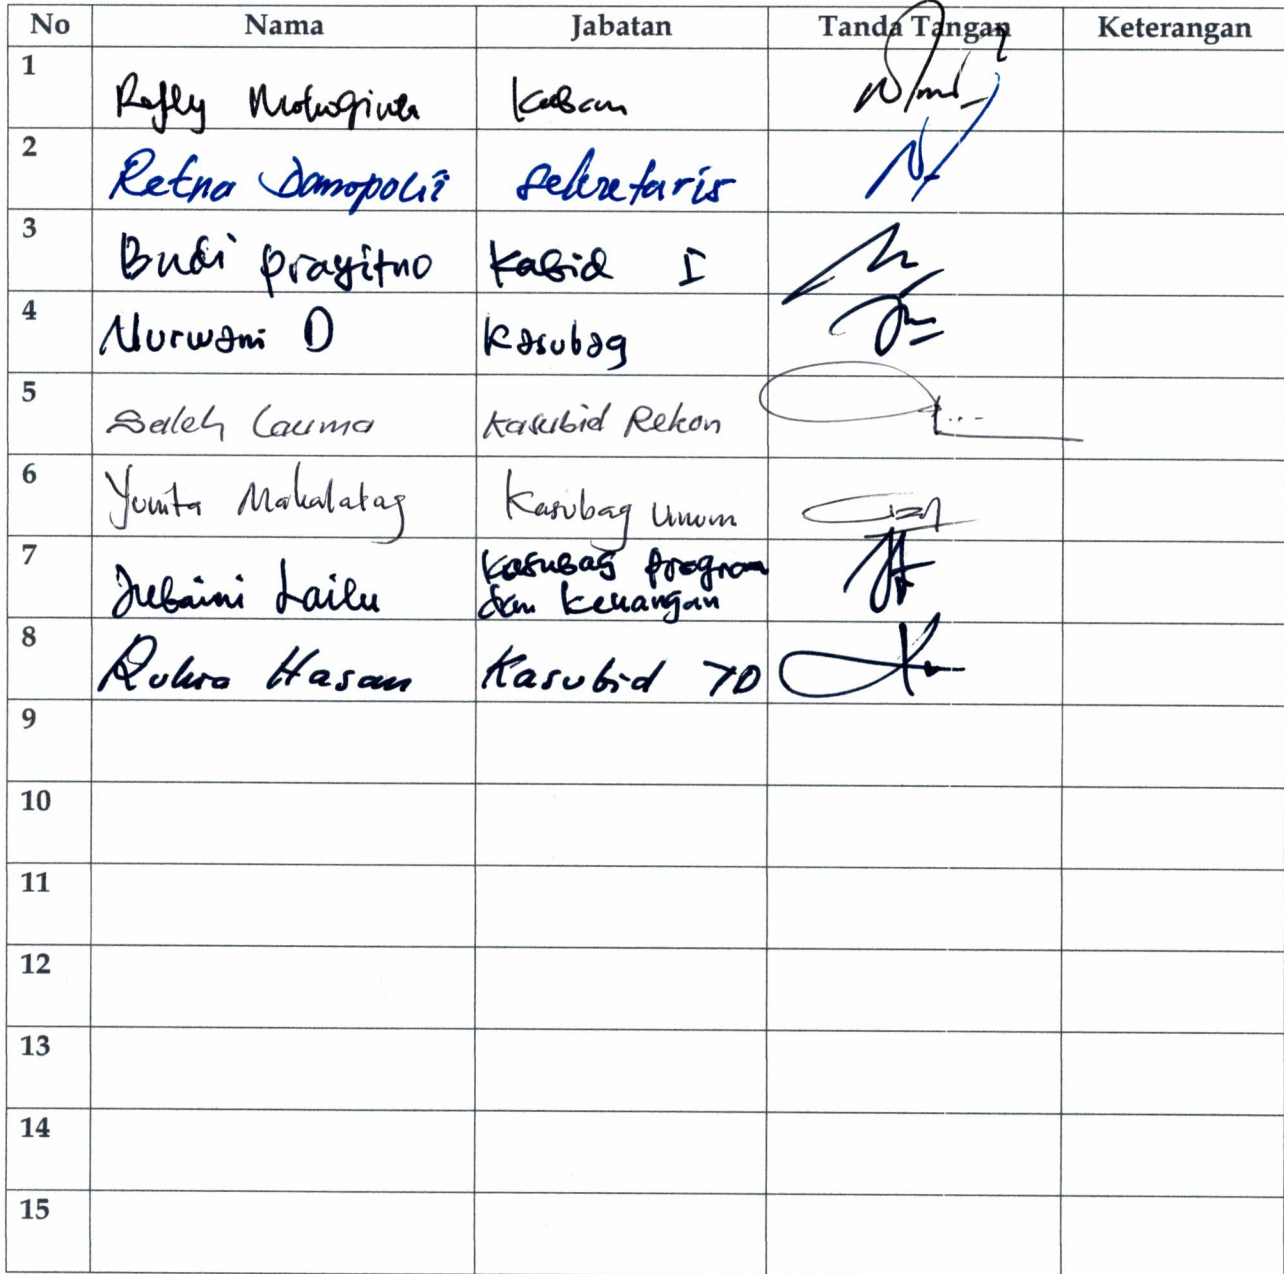 No Nama Jabatan Tanda Tangan Keterangan
1 Refly Mokoginta Kaban
2 Retna Damopolii Sekretaris
3 Budi Prayitno Kabid I
4 Nurwani D Kasubag
5 Saleh Lauma Kasubid Rekon
6 Yunita Makalalag Kasubag Umum
7 Jubaini Lailu Kasubag program
dan keuangan
8 Hasan Kasubid
9
10
11
12
13
14
15